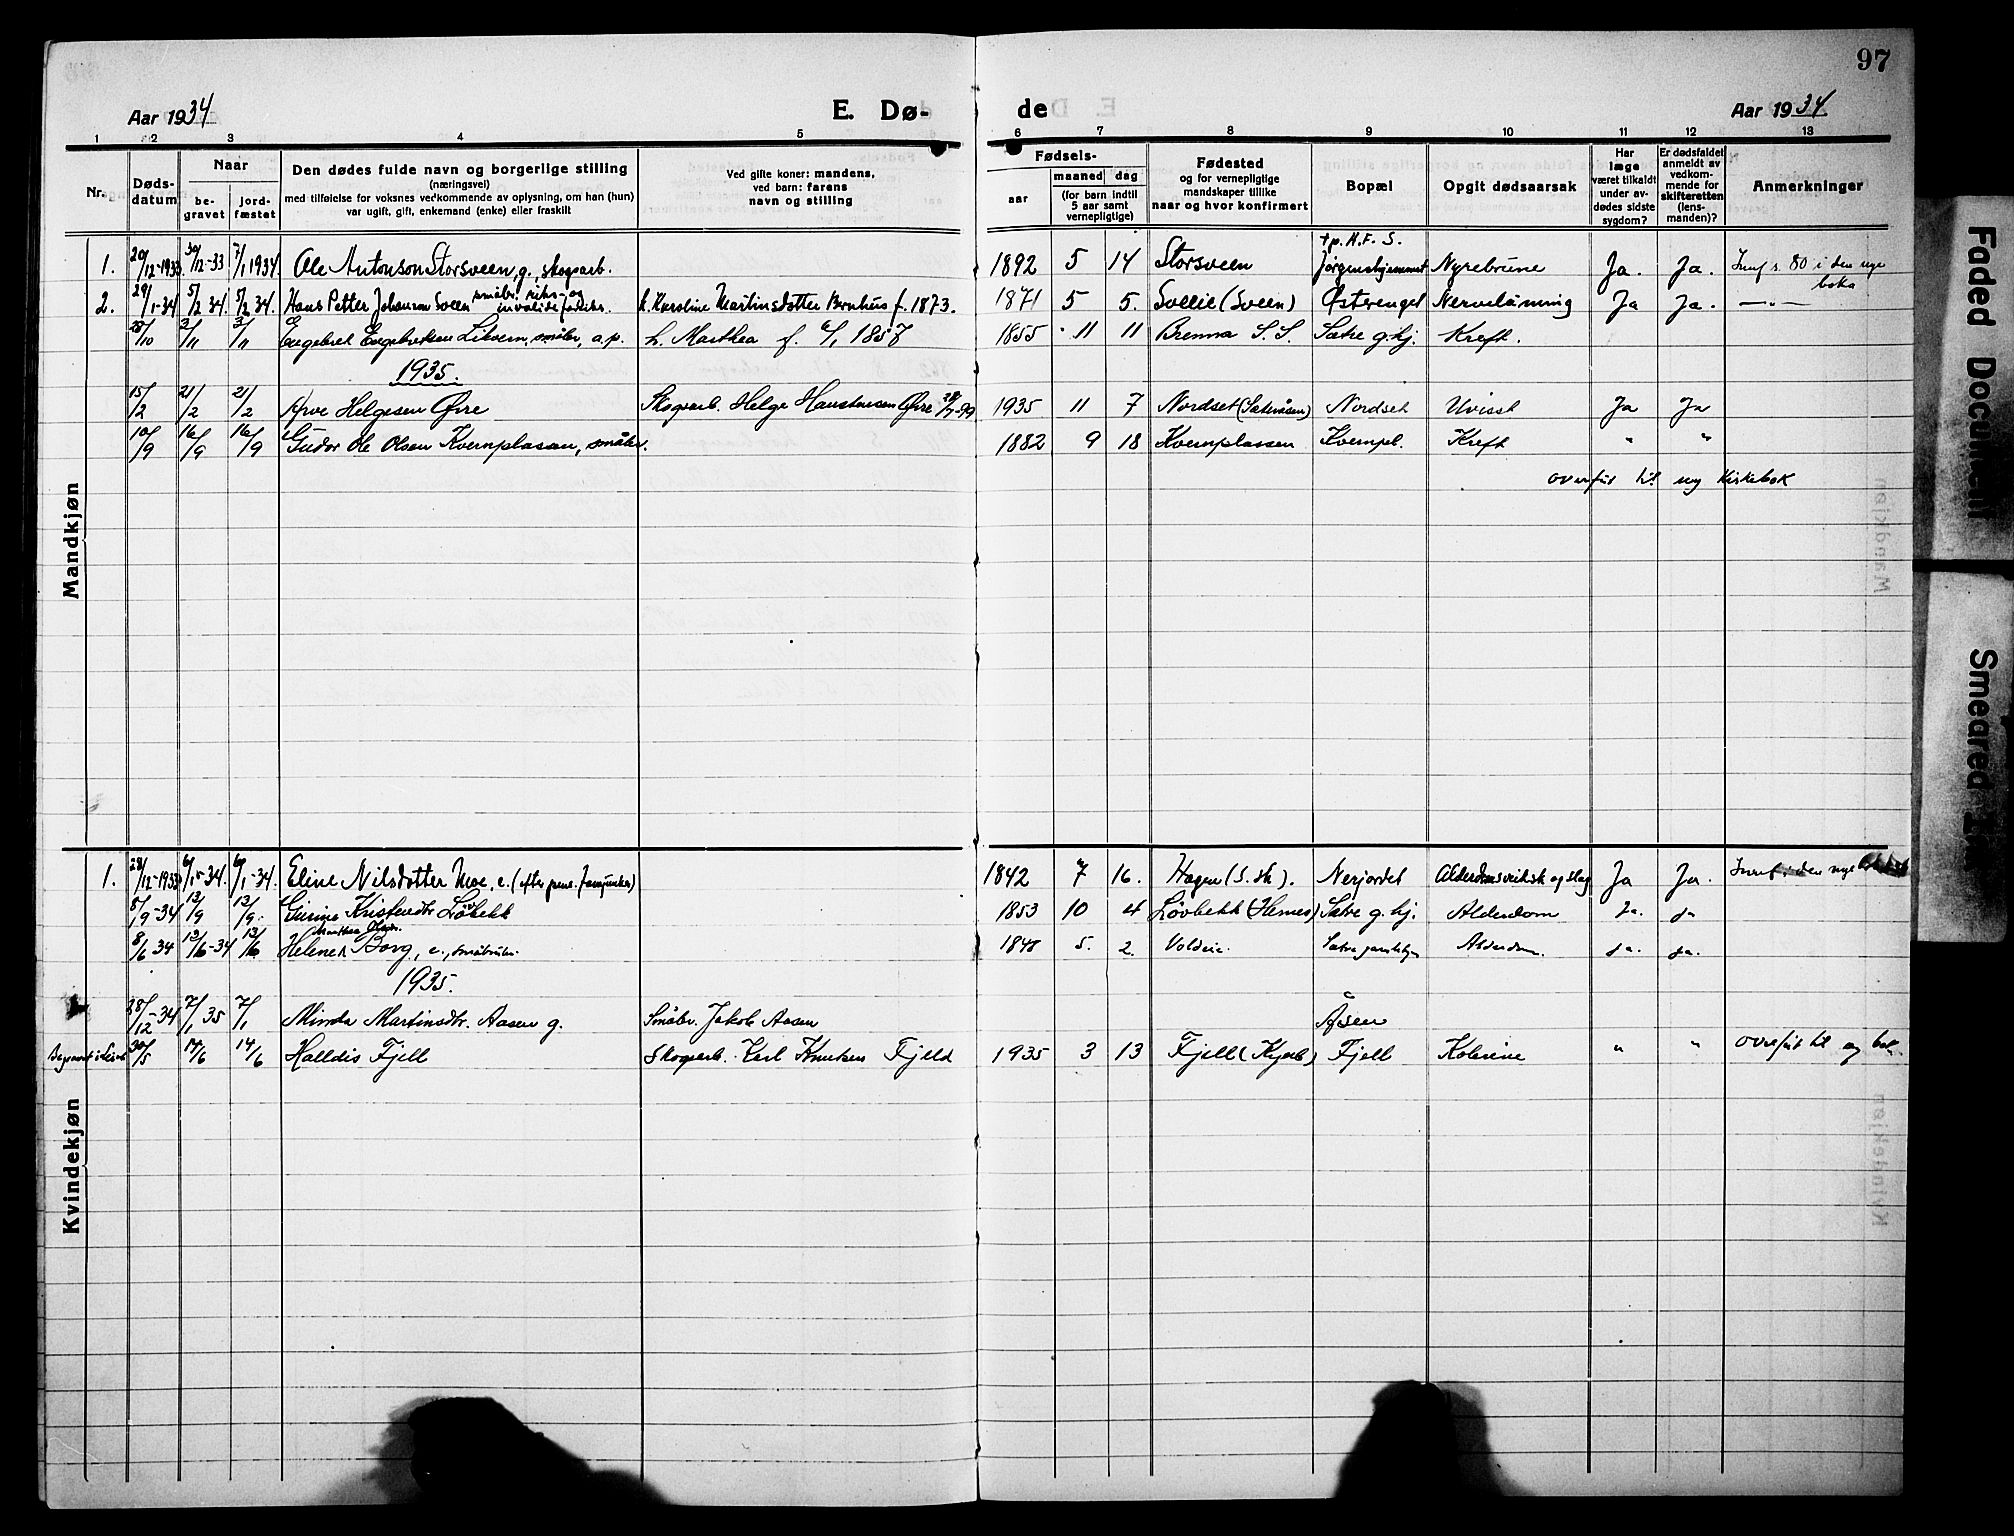 97
Aar 1934
E. Dø-
de
Aar 1934
1 2 3 4 5 6 7 8 9 10 11 12 13
Nr.
Døds-
datum
Naar
be-
gravet
jord-
fæstet
Den dødes fulde navn og borgerlige stilling
(næringsvei)
med tilføielse for voksnes vedkommende av oplysning, om han (hun)
var ugift, gift, enkemand (enke) eller fraskilt
Ved gifte koner: mandens,
ved barn: farens
navn og stilling
Fødsels-
aar
maaned dag
(for barn indtil
5 aar samt
vernepligtige)
Fødested
og for vernepligtige
mandskaper tillike
naar og hvor konfirmert
Bopæl
Opgit dødsaarsak
Har
læge
været tilkaldt
under av-
dødes sidste
sygdom?
Er dødsfaldet
anmeldt av
vedkom-
mende for
skifteretten
(lens-
manden)?
Anmerkninger
Mandkjøn
1. 20/12-1933 30/12-33 7/1 1934 Ole Antonson Storsveen, g., skogsarb. 1892 5 14 Storsveen +p. H.F.S. Nyrebrune Ja. Ja. Innf s. 80 i den nye
boka
2. 29/1-34 5/2 34 5/2 34 Hans Petter Johanson Sveen småbr. k. Karoline Martinsdotter f. 1873. 1871 5 5. Sollie (Sveen) Østerenget Nervelåming Ja Ja. —"—
28/10 3/11 3/11 Engebret Engebretsen Litvern, småbr. a.p. h. Marthea f. 6/1 1857 1855 11 11 Brenna S.S. Sætre g.hj. Kreft.
1935.
15/2 21/2 21/2 Arve Helgesen Øvre Skogsarb. Helge Øvre 1935 11 7 Nordset Nordset Uvisst Ja Ja
10/9 16/9 16/9 Gudor Ole Olsen Kvernplassen, småbr. 1882 9 18 Kvernplassen Kvernpl. Kreft " "
overført til ny Kirkebok
Kvindekjøn
1. 28/12-1933 6/1-34. 6/1-34. Eline Nilsdotter Moe, e. (efter pens. fanejunker) 1842 7 16. Hagen (S. sk). Nerjordet og slag Ja Ja. Innf i den nye
8/9-34 13/9 13/9. Gurine Kristendtr Løbekk 1853 10 4 Løvbekk (Hernes) Sætre g. hj. Alderdom Ja. ja
8/6 34 13/6-34 13/6 Helene Borg, e., småbruker. 1848 5. 2. Voldeie. Alderdom. ja. ja.
1935.
28/12-34 7/1 35 7/1 Minda Martinsdtr. Aasen g. Småbr. Jakob Aasen Åsen
30/5 14/6 14/6 Halldis Fjell Skogsarb. Karl Knutsen Fjeld 1935 3 13 Fjell Fjell Kolerine " " overført til ny bok.
Faded Document
Smeared Ink